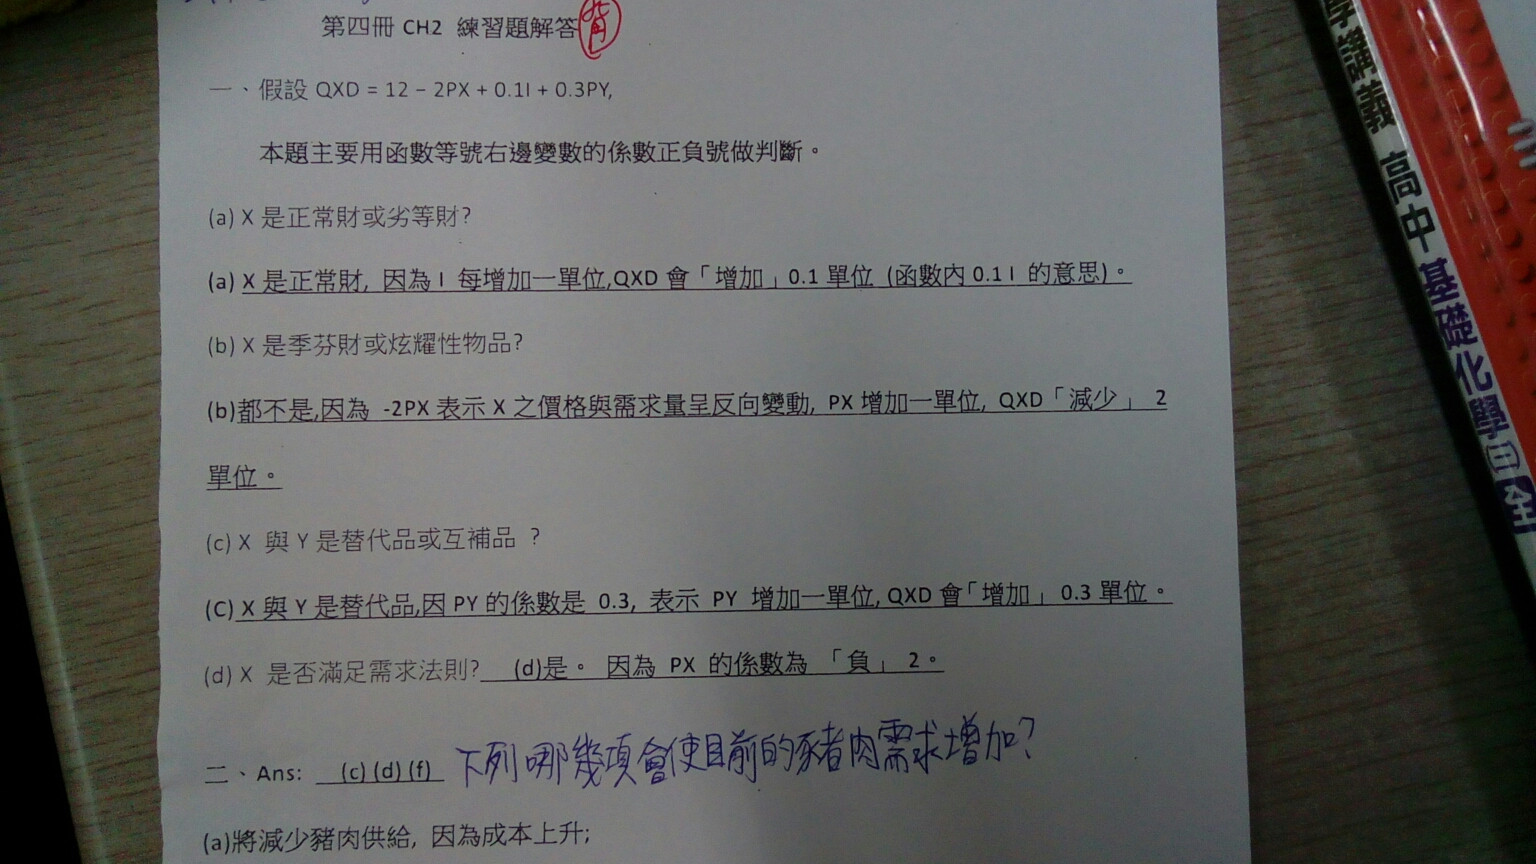 第四冊 CH2 練習題解答
一、假設 QXD = 12 − 2PX + 0.1I + 0.3PY,
本題主要用函數等號右邊變數的係數正負號做判斷。
(a) X 是正常財或劣等財?
(a) X 是正常財, 因為 I 每增加一單位,QXD 會「增加」0.1 單位 (函數內 0.1 I 的意思)。
(b) X 是季芬財或炫耀性物品?
(b)都不是,因為 -2PX 表示 X 之價格與需求量呈反向變動, PX 增加一單位, QXD「減少」 2
單位。
(c) X 與 Y 是替代品或互補品 ?
(C) X 與 Y 是替代品,因 PY 的係數是 0.3, 表示 PY 增加一單位, QXD 會「增加」 0.3 單位。
(d) X 是否滿足需求法則? (d)是。 因為 PX 的係數為 「負」 2。
二、Ans: (c) (d) (f) 下列哪幾項會使目前的豬肉需求增加?
(a)將減少豬肉供給, 因為成本上升;
學講義 高中 基礎化學(三)全